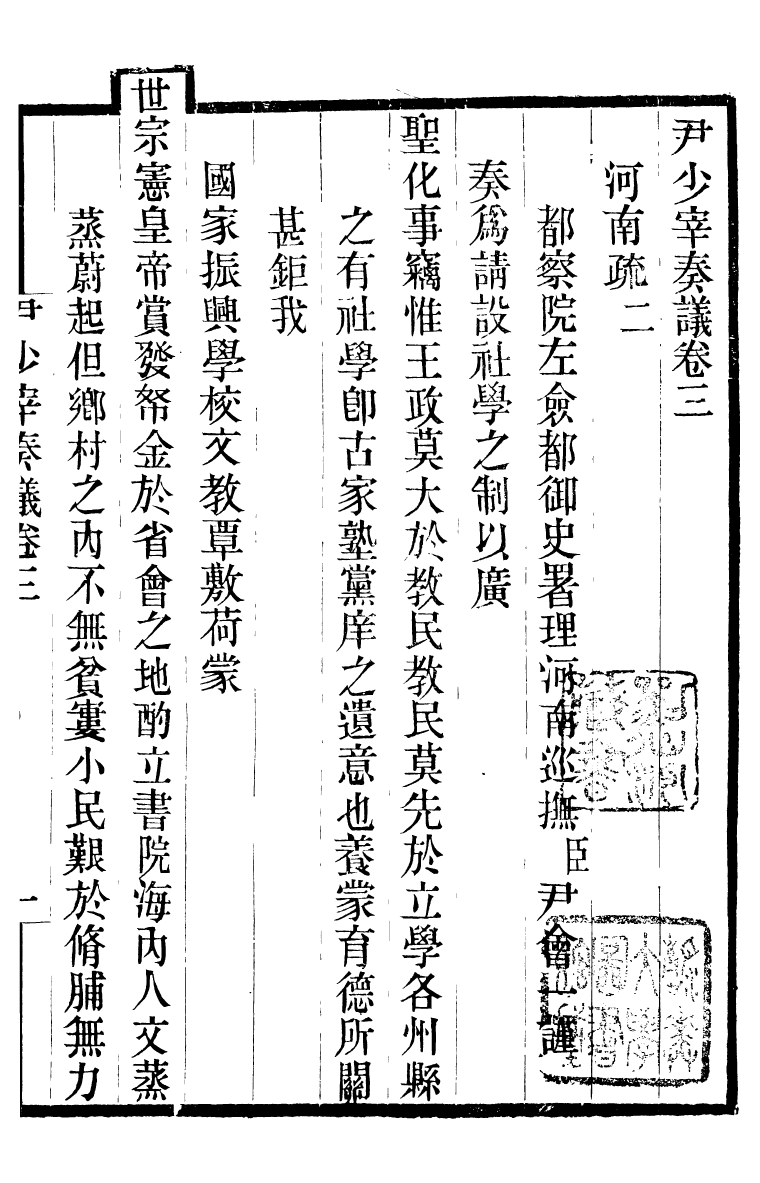 尹少宰奏議卷三
河南疏二
都察院左僉都御史署理河南巡撫臣尹會一謹
奏爲請設社學之制以廣
聖化事竊惟王政莫大於教民教民莫先於立學各州縣
之有社學卽古家塾黨庠之遺意也養蒙育德所關
甚鉅我
國家振興學校文教覃敷荷蒙
世宗憲皇帝賞發帑金於省會之地酌立書院海內人文蒸
蒸蔚起但鄉村之內不無貧窶小民艱於脩脯無力
尹少宰奏議卷三
一